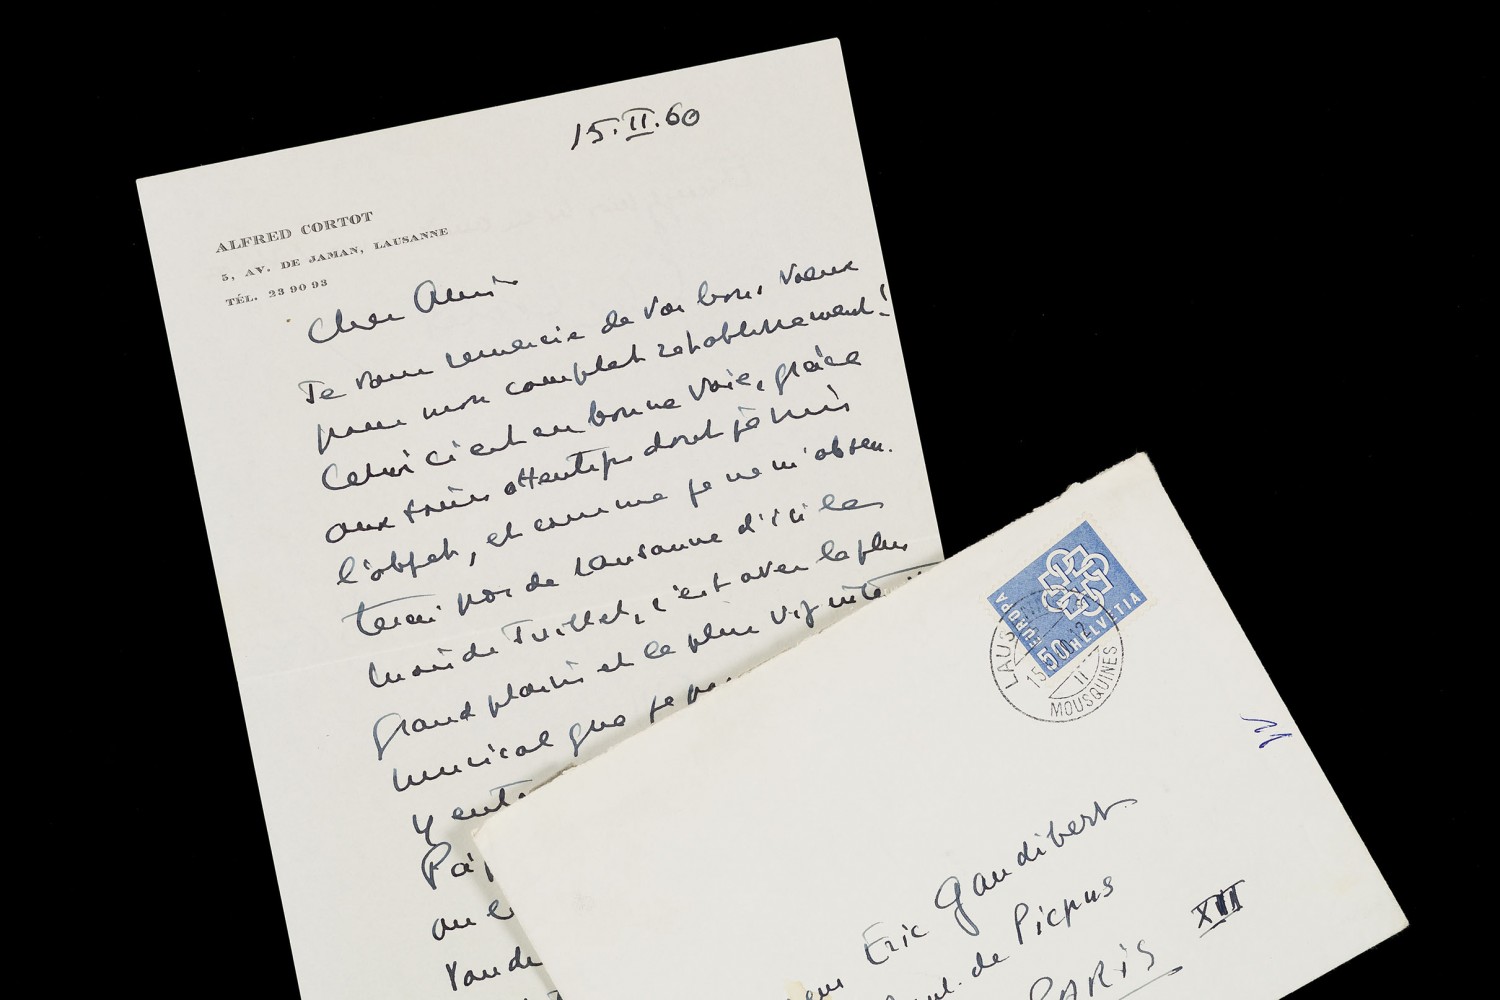 15.II.60
ALFRED CORTOT
5, AV. DE JAMAN, LAUSANNE
TÉL. 23 90 93
Cher Ami
Je vous remercie de vos bons vœux
pour mon complet rétablissement!
Celui ci est en bonne voie, grâce
aux soins attentifs dont je suis
l'objet, et comme je ne m'absen.
terai pas de Lausanne d'ici le
mois de Juillet, c'est avec le plus
grand plaisir et le plus vif
musical que je
y
EUROPA
50 HELVETIA
LAUS
15
MOUSQUINES
Eric Gaudibert
de Picpus
PARIS XII